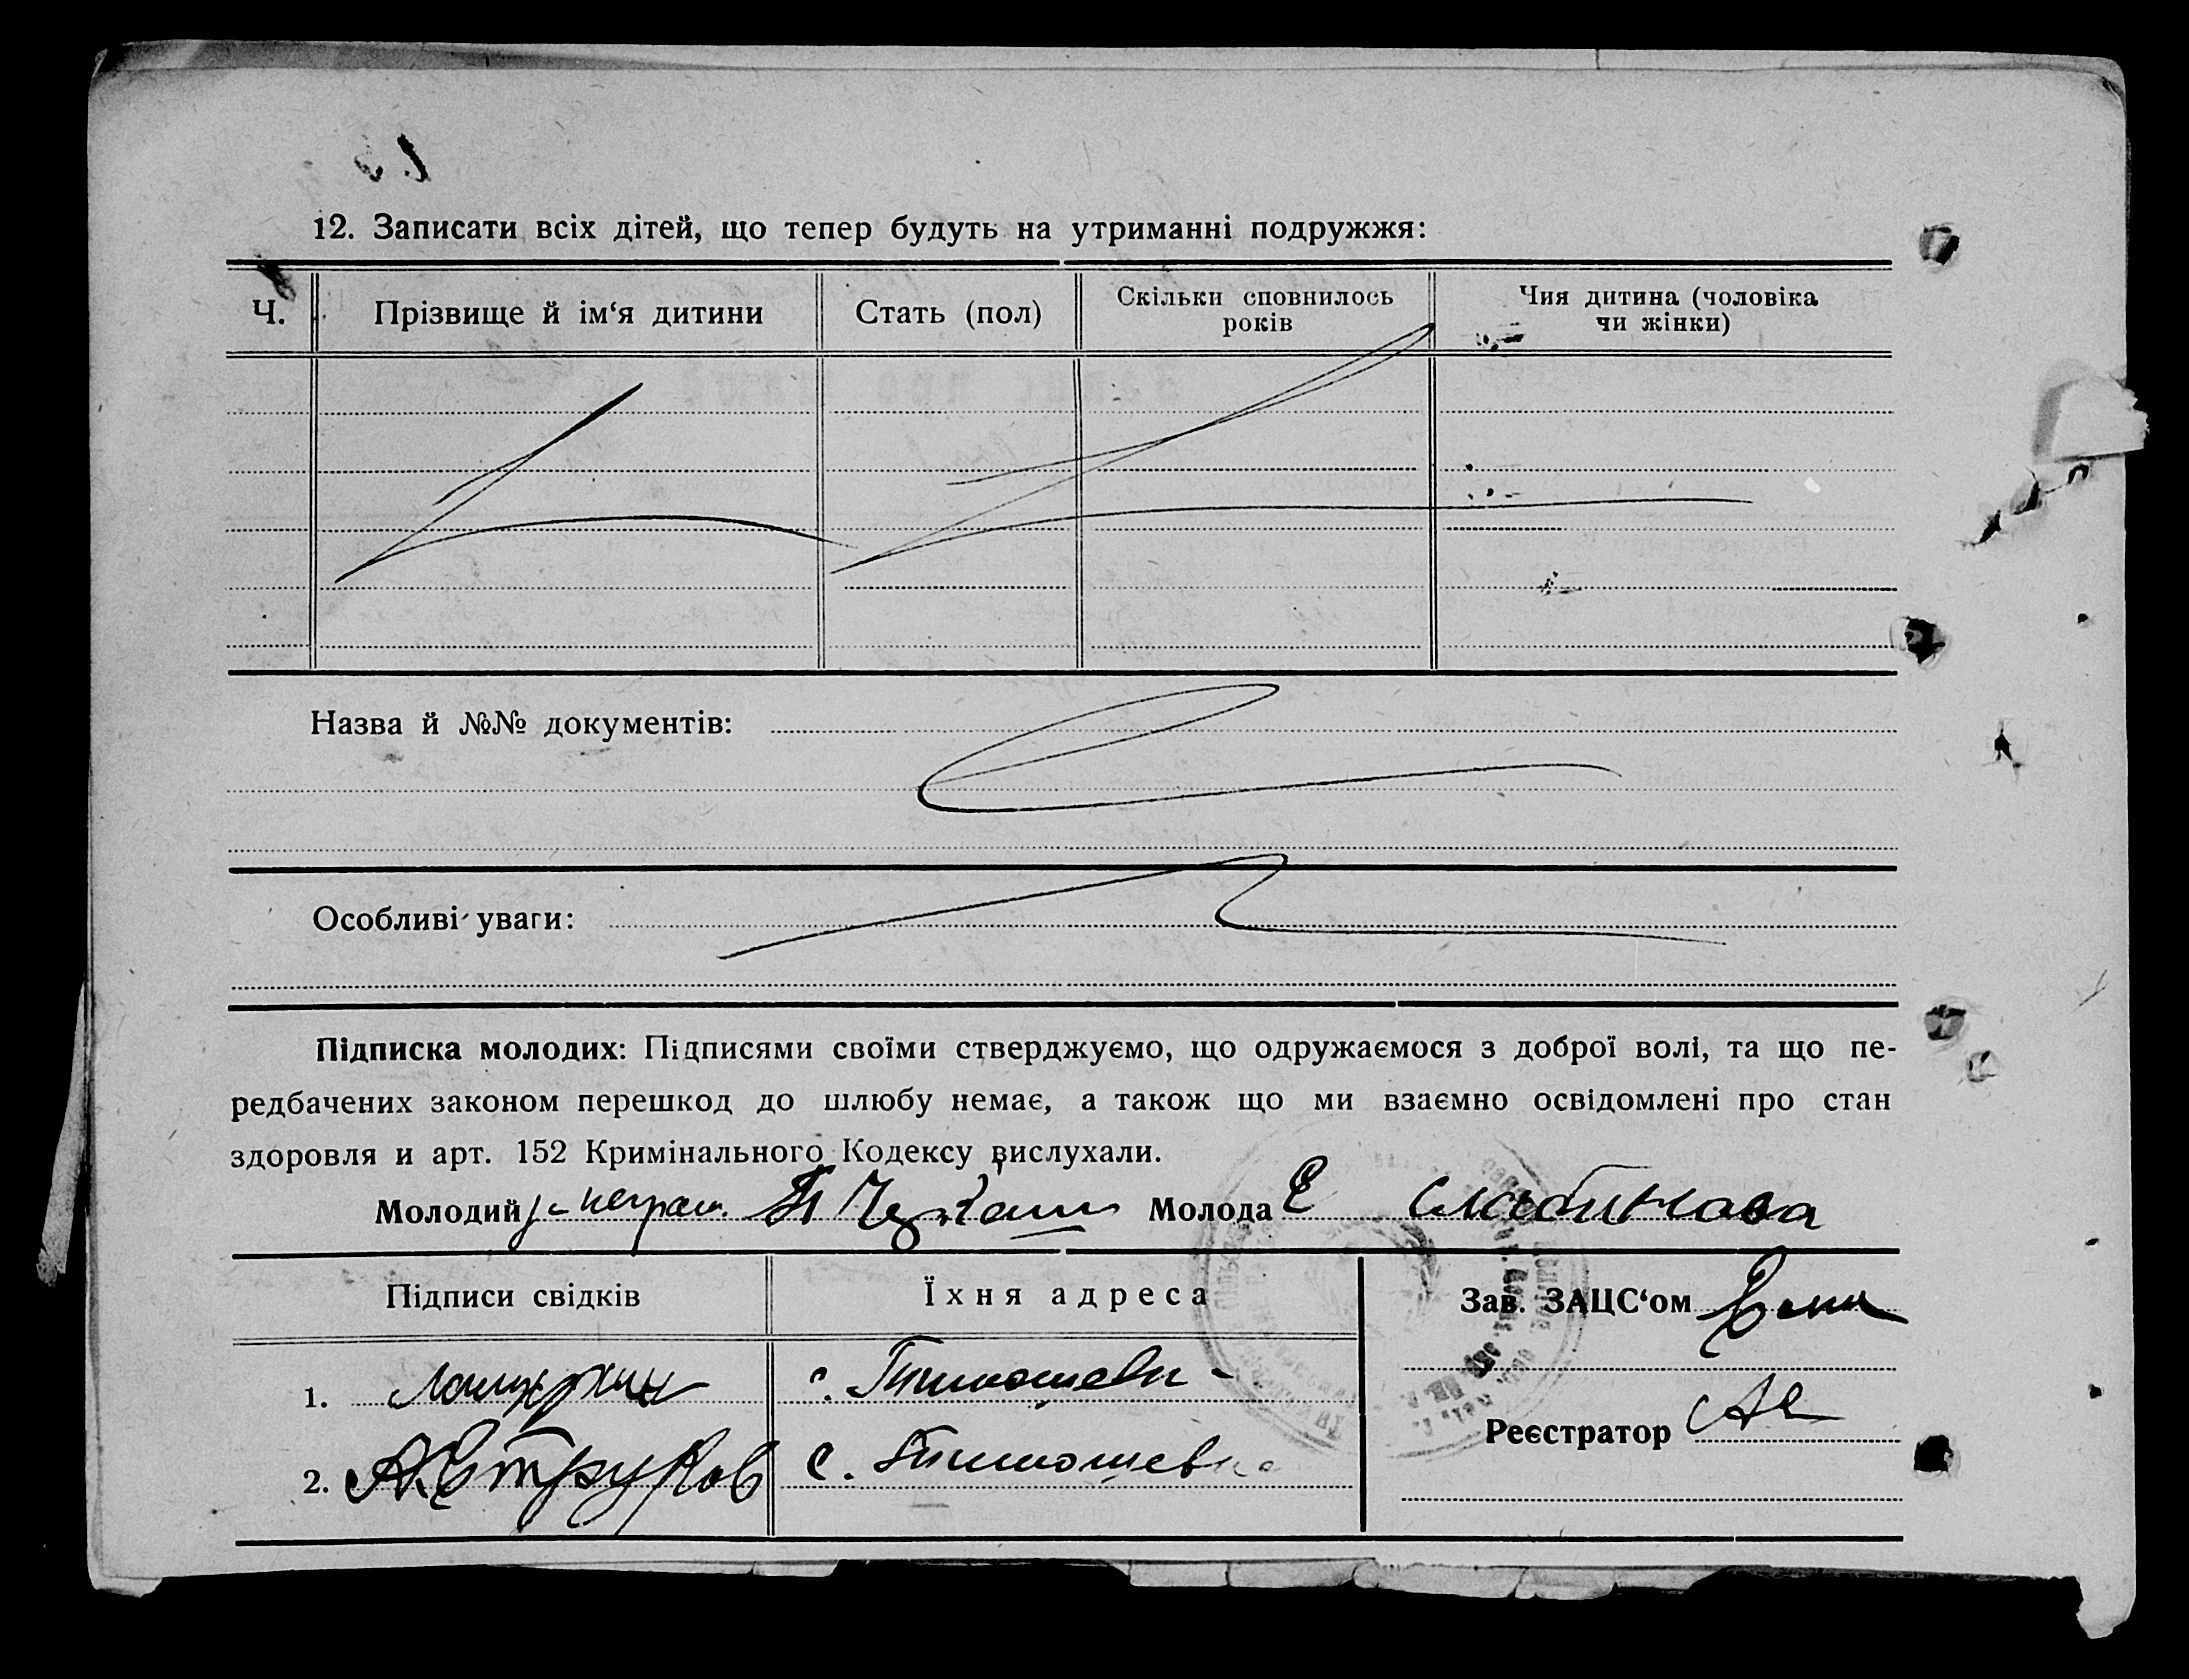 12. Записати всіх дітей, що тепер будуть на утриманні подружжя:
Ч. Прізвище й ім‘я дитини Стать (пол) Скільки сповнилось років Чия дитина (чоловіка чи жінки)
Назва й №№ документів:
Особливі уваги:
Підписка молодих: Підписями своїми стверджуємо, що одружаємося з доброї волі, та що пе-
редбачених законом перешкод до шлюбу немає, а також що ми взаємно освідомлені про стан
здоровля и арт. 152 Кримінального Кодексу вислухали.
Молодий Молода
Підписи свідків Їхня адреса Зав. ЗАЦС‘ом
1. с. Тимошевк
Реєстратор
2. с. Тимошевка